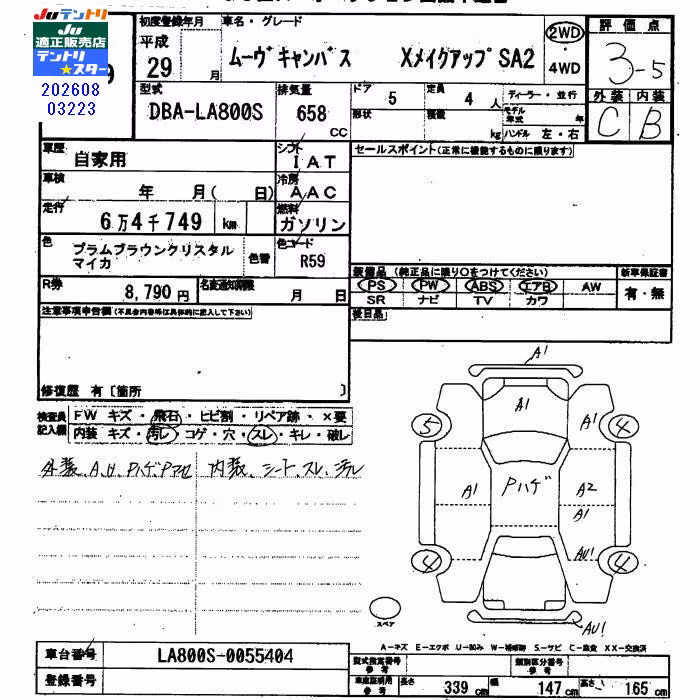 Juテントリ Juテントリ
Ju
適正販売店
テントリ★スター
202608
03223
初度登録年月
平成
29 月
車名・グレード
ムーヴキャンバス XメイクアップSA2
2WD
・
4WD
評価点
3-5
外装 内装
C B
型式
DBA-LA800S
排気量
658
CC
ドア
5
定員
4 人
ディーラー・並行
形状
積載
kg
モデル年式 年
ハンドル 左・右
車歴
自家用
シフト
IAT
セールスポイント(正常に機能するものに限ります)
車検
年 月( 日)
冷房
AAC
走行
6万4千749 km
燃料
ガソリン
色
プラムブラウンクリスタル
マイカ
色替
色コード
R59
R券
8,790 円
名変通知期限
月 日
装備品(純正品に限り○をつけてください)
新車保証書
PS PW ABS エアB AW
SR ナビ TV カワ
有・無
後日品
注意事項申告欄(不具合内容等は具体的に記入して下さい)
修復歴 有[箇所 ]
検査員
記入欄
FW キズ・飛石・ヒビ割・リペア跡・×要
内装 キズ・汚レ・コゲ・穴・スレ・キレ・破レ
外装、A,U,Pハゲ 内装、シート、スレ、汚レ
A1
A1
A1
5
4
A1
Pハゲ
A2
A1
AU1
4
4
AU1
スペア
A-キズ E-エクボ U-凹み W-補修跡 S-サビ C-腐食 XX-交換済
車台番号
LA800S-0055404
登録番号
型式指定番号
参考
類別区分番号
参考
車庫証明用
参考
長さ 339 cm 幅 147 cm 高さ 165 cm